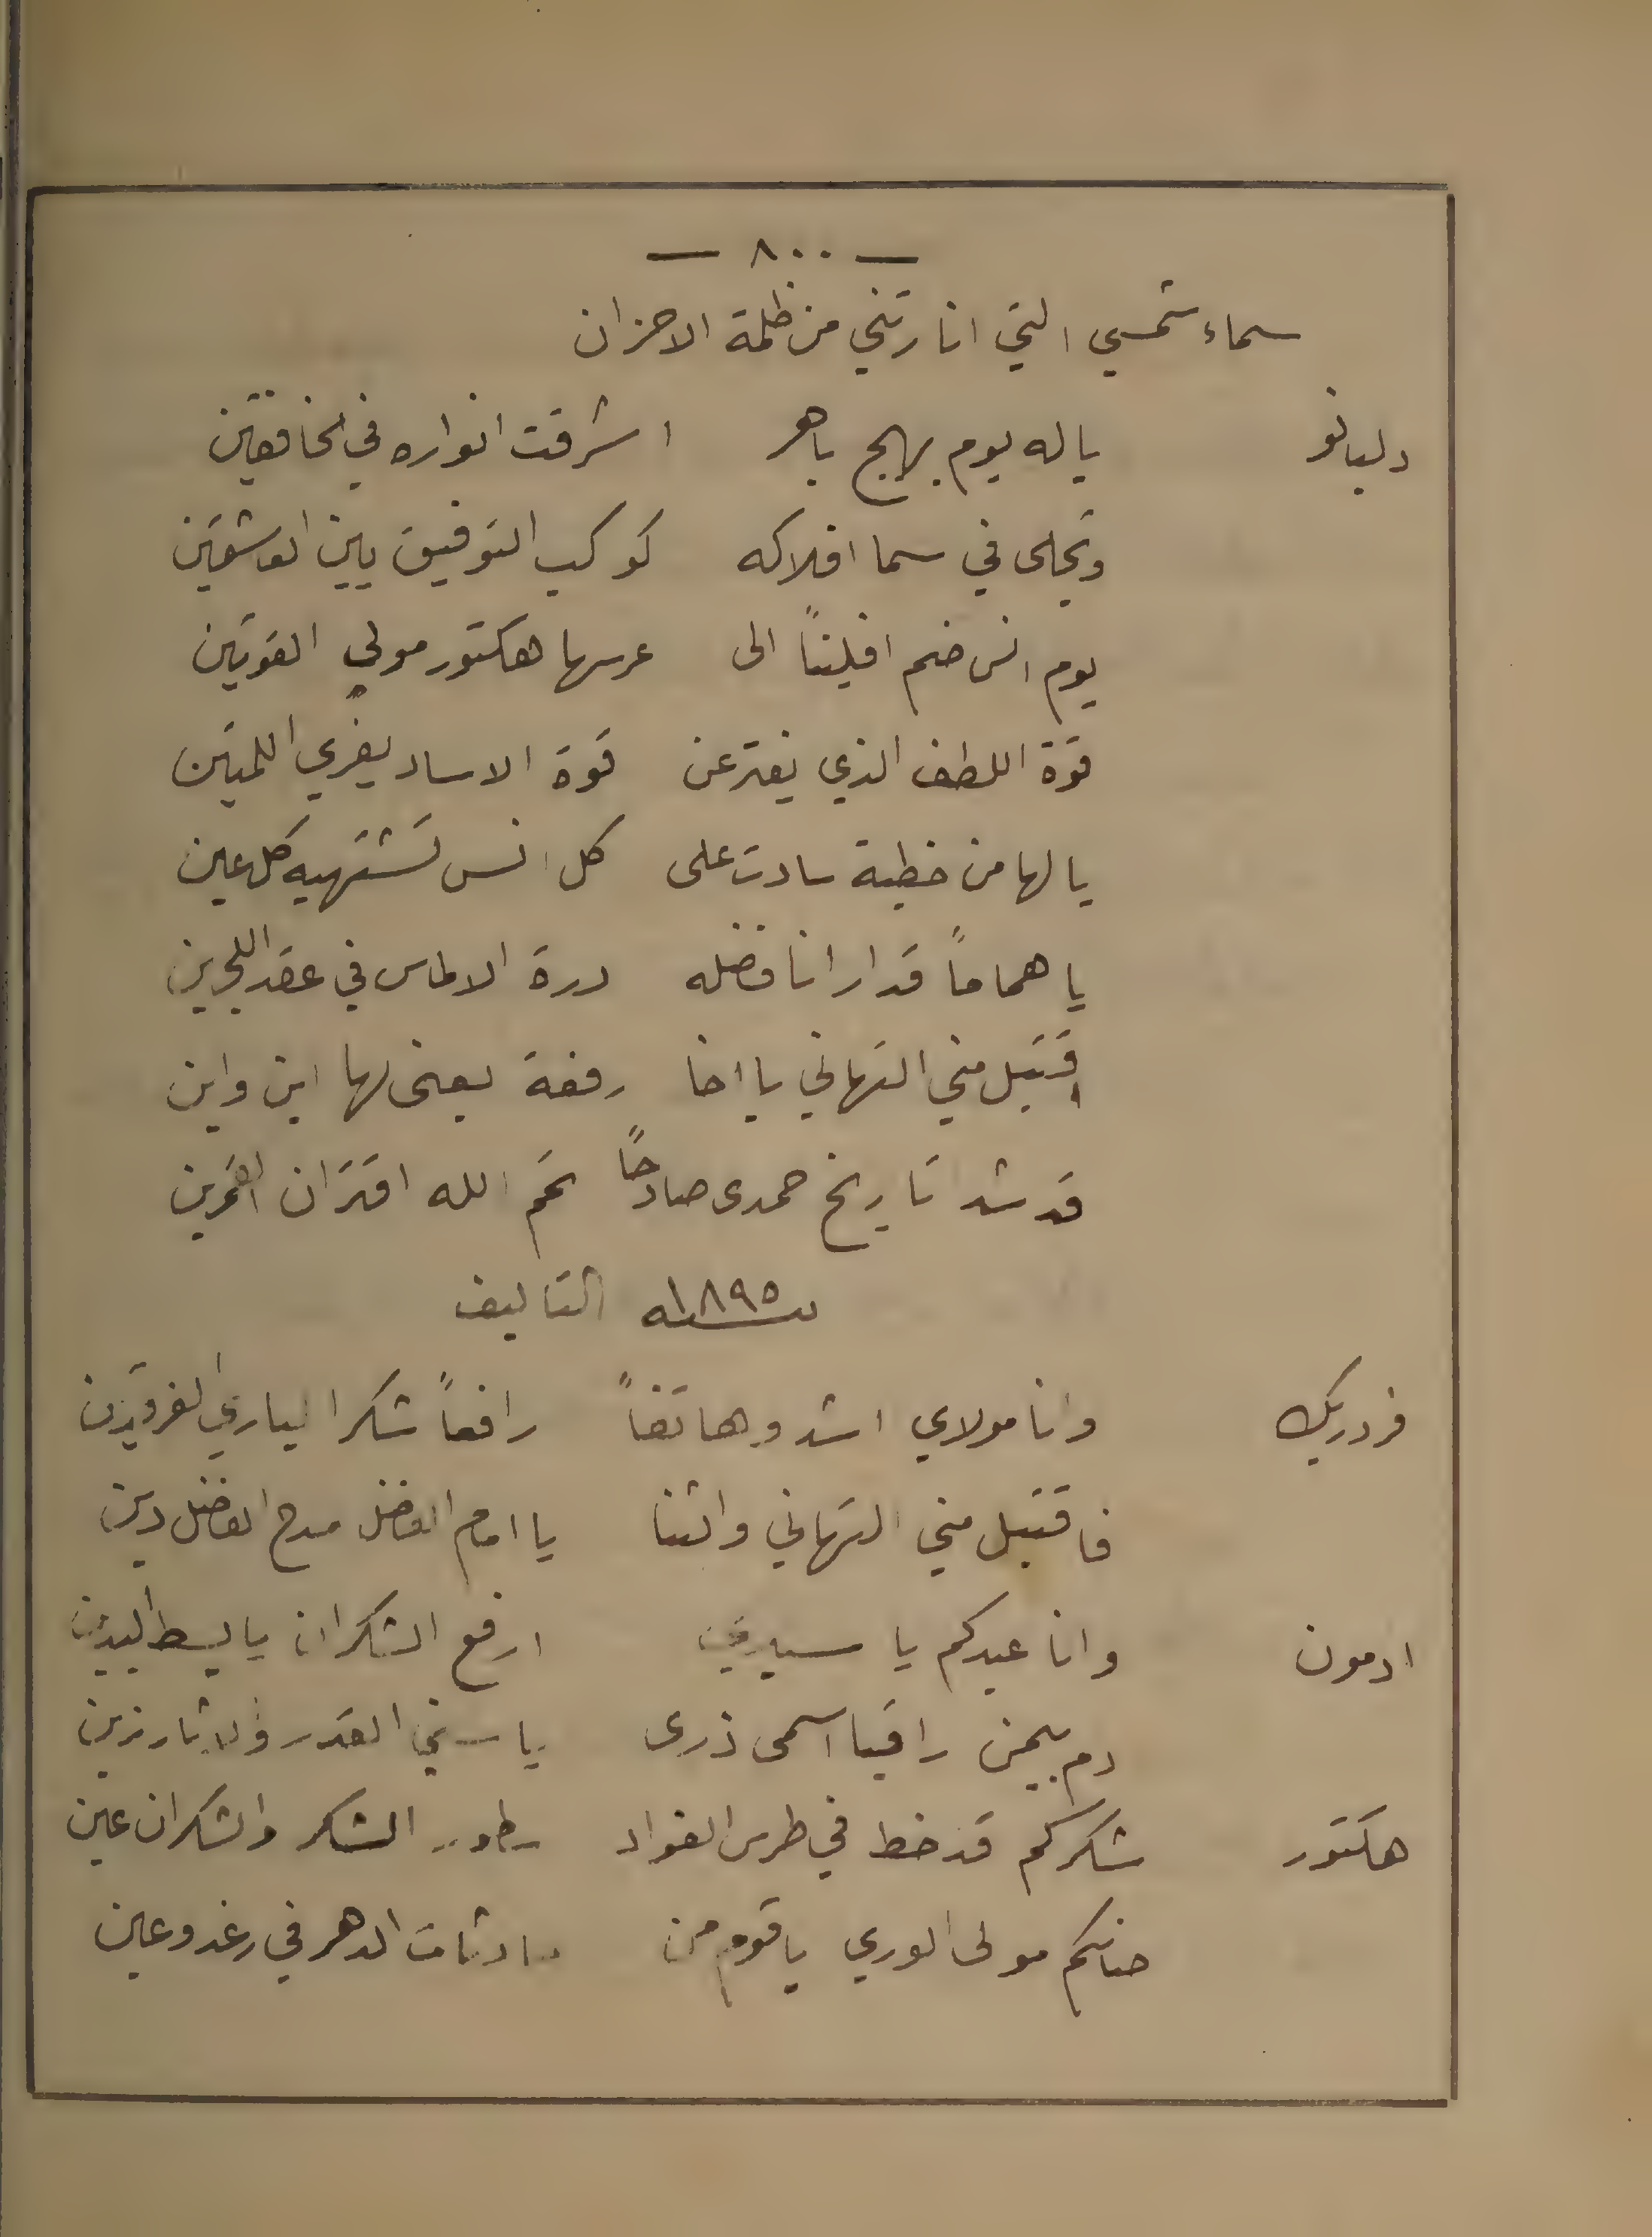 — ٨٠٠ —
سماء شمسي التي انارتني من ظلمة الاحزان
دلبانو ياله يوم بهيج باهر اشرقت انواره في الخافقين
وتجلى في سما افلاكه كوكب التوفيق بين العاشقين
يوم انس ضم افلينًا الى عرسها هكتور مولي القوتين
قوة اللطف الذي يفتر عن قوة الاساد يفري
يا لها من خطبة سادت على كل انس تشتهيه كل عين
يا هماماً قد ارانا فضله درة الالماس في عقد اللجين
اقتبل مني التهاني يا اخا رفعة يعنى لها اين واين
قد شدا تاريخ حمدى صادحاً تمم الله اقتران القمرين
سنة ١٨٩٥ التاليف
فردريك وانا مولاي اشدو هاتفاً رافعاً شكرا لباري الفرقدين
فاقتبل مني التهاني والثنا يا امام الفضل مدح الفضل دين
ادمون وانا عبدكم يا سيدي ارفع الشكران يا بسط اليدين
دم بيمن راقيا اسمى ذرى يا سني القدر
هكتور شكركم قد خط في طرس الفواد سطور الشكر والشكران عين
صانكم مولى الوري يا قوم من حادثات الدهر في رغد وعين